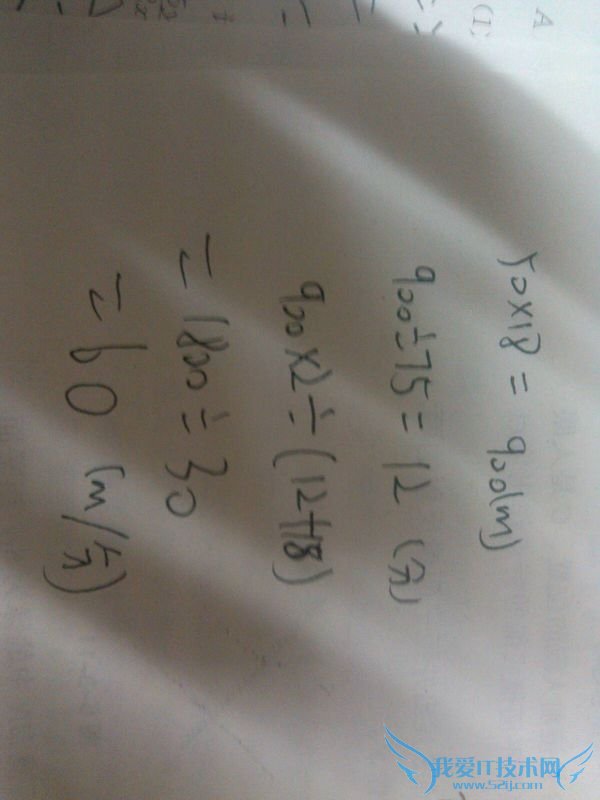 50×18=900(m)
900÷75=12(分)
900×2÷(12+18)
=1800÷30
=60(m/分)
A
(1)
我爱IT技术网
www.52ij.com